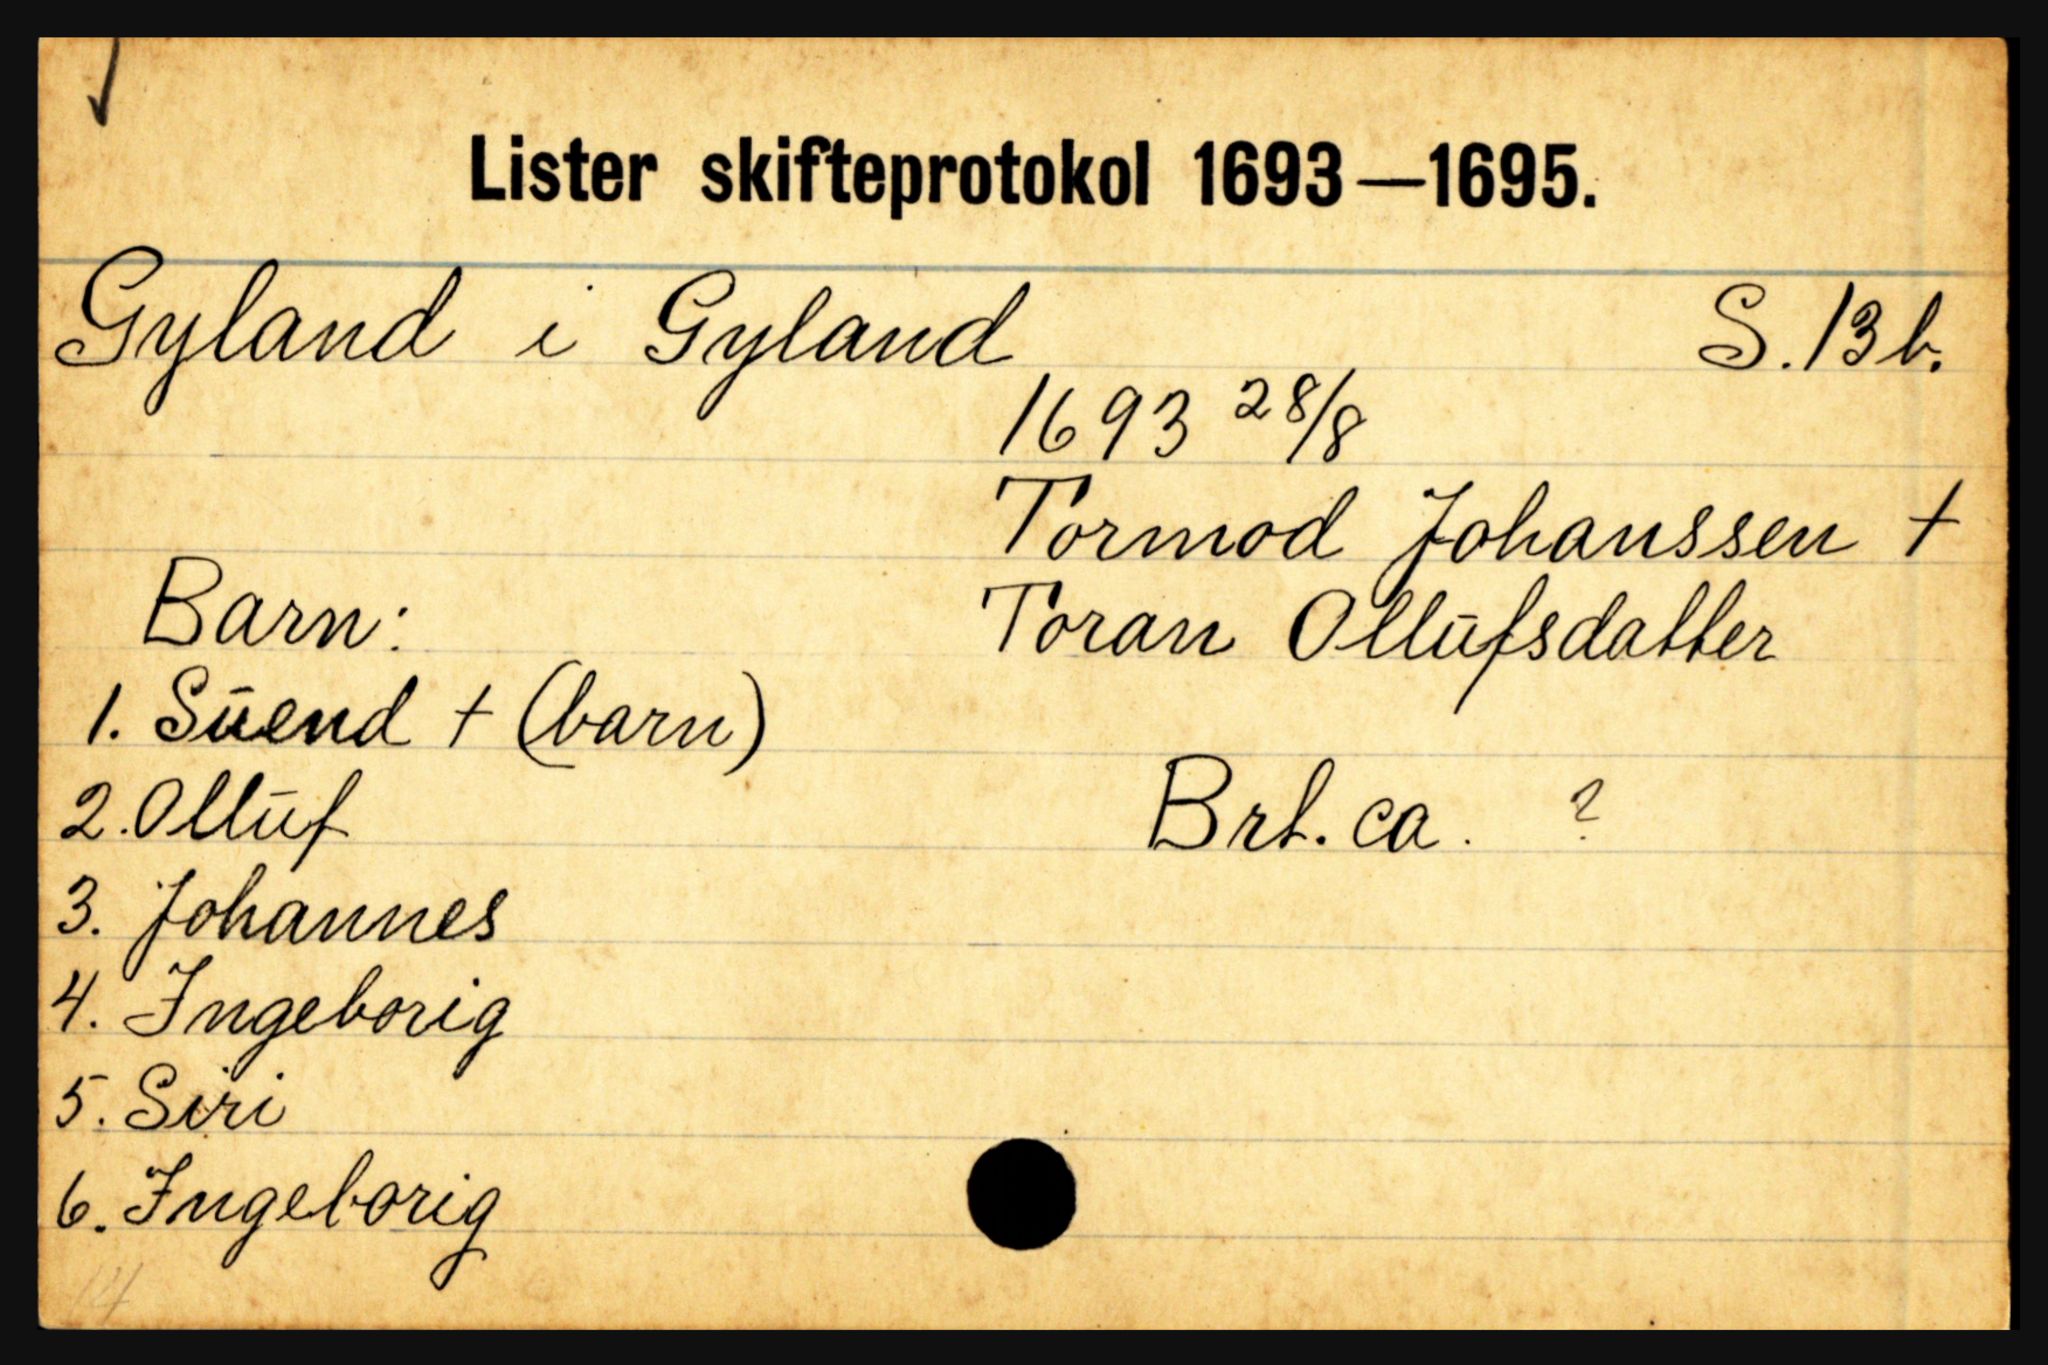 Lister skifteprotokol 1693—1695.
Gyland i Gyland S. 13 b.
1693 28/8
Tormod Johanssen +
Toran Ollūfsdatter
Barn:
1. Sūend + (barn)
2. Ollūf
Brt. ca. ?
3. Johannes
4. Ingeborig
5. Siri
6. Ingeborig
14